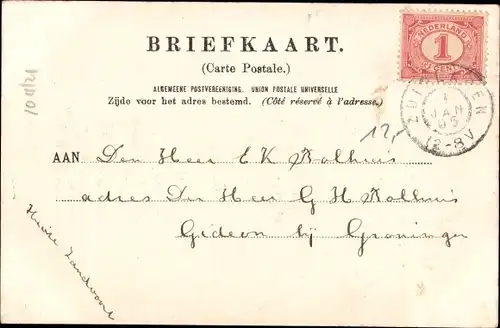 BRIEFKAART.
(Carte Postale.)
ALGEMEENE POSTVEREENIGING. UNION POSTALE UNIVERSELLE
Zijde voor het adres bestemd. (Côté réservé à l'adresse.)
NEDERLAND
1
CENT
1
JAN
05
12-8V
12,
AAN Den Heer E K Nolhuis
adres Den Heer G H Nolhuis
Gideon bij Groningen
Zandvoort